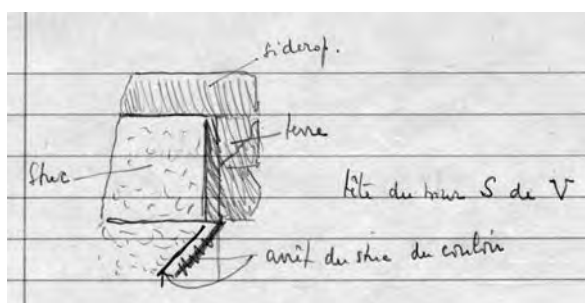 siderop.
terre
stuc
tête du mur S de V
arrêt du stuc du couloir